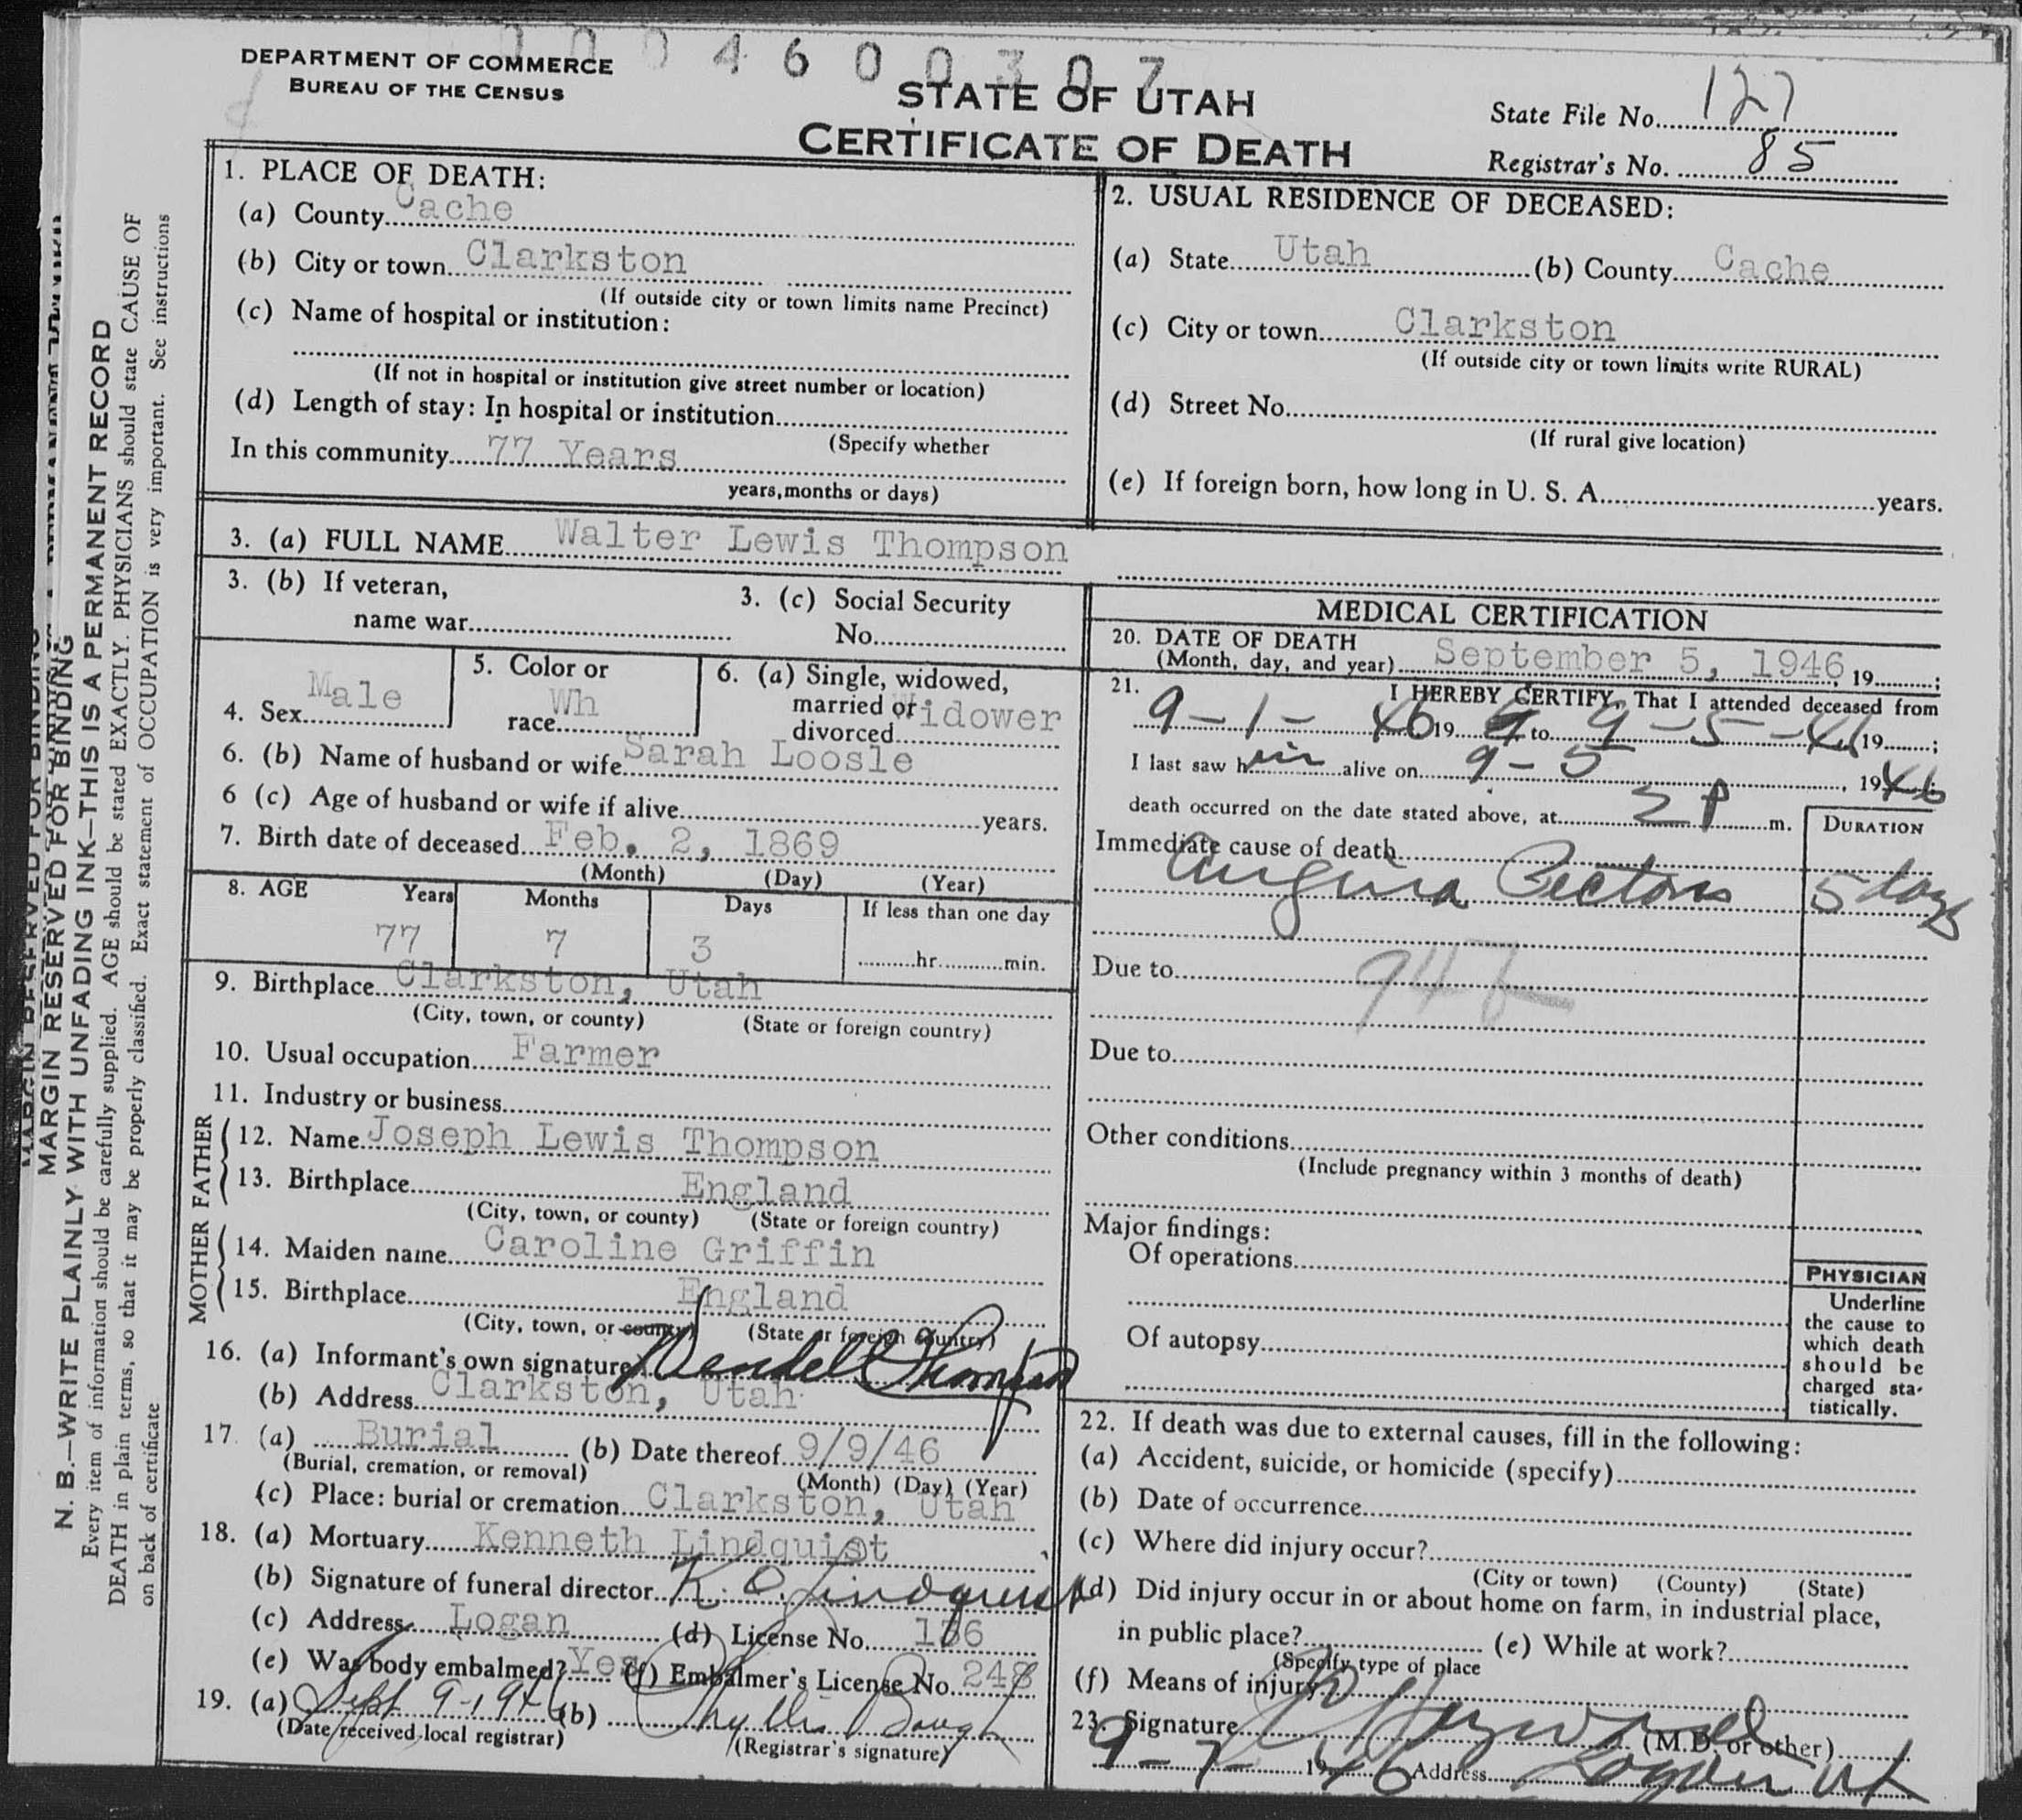 0004600307
DEPARTMENT OF COMMERCE
BUREAU OF THE CENSUS
STATE OF UTAH
CERTIFICATE OF DEATH
State File No. 127
Registrar's No. 85
MARGIN RESERVED FOR BINDING
N. B.—WRITE PLAINLY WITH UNFADING INK—THIS IS A PERMANENT RECORD
Every item of information should be carefully supplied. AGE should be stated EXACTLY. PHYSICIANS should state CAUSE OF
DEATH in plain terms, so that it may be properly classified. Exact statement of OCCUPATION is very important. See instructions
on back of certificate
1. PLACE OF DEATH:
(a) County Cache
(b) City or town Clarkston
(If outside city or town limits name Precinct)
(c) Name of hospital or institution:
(If not in hospital or institution give street number or location)
(d) Length of stay: In hospital or institution
(Specify whether
In this community 77 Years
years, months or days)
2. USUAL RESIDENCE OF DECEASED:
(a) State Utah (b) County Cache
(c) City or town Clarkston
(If outside city or town limits write RURAL)
(d) Street No.
(If rural give location)
(e) If foreign born, how long in U. S. A. years.
3. (a) FULL NAME Walter Lewis Thompson
3. (b) If veteran,
name war
3. (c) Social Security
No.
4. Sex Male
5. Color or
race Wh
6. (a) Single, widowed,
married or
divorced Widower
6. (b) Name of husband or wife Sarah Loosle
6 (c) Age of husband or wife if alive years.
7. Birth date of deceased Feb. 2, 1869
(Month) (Day) (Year)
8. AGE Years Months Days If less than one day
77 7 3 hr. min.
9. Birthplace Clarkston, Utah
(City, town, or county) (State or foreign country)
10. Usual occupation Farmer
11. Industry or business
FATHER
12. Name Joseph Lewis Thompson
13. Birthplace England
(City, town, or county) (State or foreign country)
MOTHER
14. Maiden name Caroline Griffin
15. Birthplace England
(City, town, or county) (State or foreign country)
16. (a) Informant's own signature Wendell Thompson
(b) Address Clarkston, Utah
17. (a) Burial (b) Date thereof 9/9/46
(Burial, cremation, or removal) (Month) (Day) (Year)
(c) Place: burial or cremation Clarkston, Utah
18. (a) Mortuary Kenneth Lindquist
(b) Signature of funeral director K. E. Lindquist
(c) Address Logan (d) License No. 156
(e) Was body embalmed? Yes (f) Embalmer's License No. 248
19. (a) Sept 9-1946 (b) Phyllis Baugh
(Date received local registrar) (Registrar's signature)
MEDICAL CERTIFICATION
20. DATE OF DEATH
(Month, day, and year) September 5, 1946, 19 ;
21. I HEREBY CERTIFY, That I attended deceased from
9-1-46 19 to 9-5-46 19 ;
I last saw him alive on 9-5, 1946
death occurred on the date stated above, at 2 P m.
DURATION
Immediate cause of death
Angina Pectoris 5 days
Due to 94b
Due to
Other conditions
(Include pregnancy within 3 months of death)
Major findings:
Of operations
Of autopsy
PHYSICIAN
Underline
the cause to
which death
should be
charged sta-
tistically.
22. If death was due to external causes, fill in the following:
(a) Accident, suicide, or homicide (specify)
(b) Date of occurrence
(c) Where did injury occur?
(City or town) (County) (State)
(d) Did injury occur in or about home on farm, in industrial place,
in public place? (e) While at work?
(Specify type of place
(f) Means of injury
23. Signature Hayward (M.D. or other)
9-7- 1946 Address Logan Ut